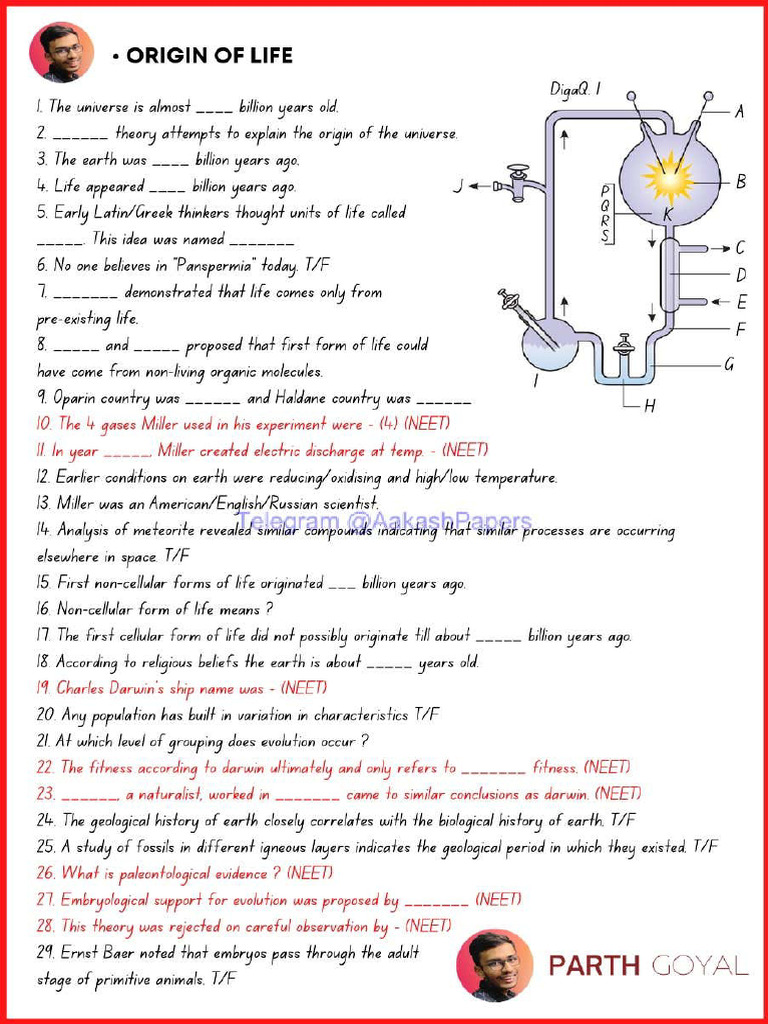 • ORIGIN OF LIFE
DigaQ. 1
1. The universe is almost ____ billion years old.
2. ______ theory attempts to explain the origin of the universe.
3. The earth was ____ billion years ago.
4. Life appeared ____ billion years ago.
5. Early Latin/Greek thinkers thought units of life called
_____. This idea was named _______
6. No one believes in "Panspermia" today. T/F
7. _______ demonstrated that life comes only from
pre-existing life.
8. _____ and _____ proposed that first form of life could
have come from non-living organic molecules.
9. Oparin country was ______ and Haldane country was ______
A
B
C
D
E
F
G
H
I
J
K
P
Q
R
S
10. The 4 gases Miller used in his experiment were - (4) (NEET)
11. In year _____, Miller created electric discharge at temp. - (NEET)
12. Earlier conditions on earth were reducing/oxidising and high/low temperature.
13. Miller was an American/English/Russian scientist.
Telegram @AakashPapers
14. Analysis of meteorite revealed similar compounds indicating that similar processes are occurring
elsewhere in space. T/F
15. First non-cellular forms of life originated ___ billion years ago.
16. Non-cellular form of life means ?
17. The first cellular form of life did not possibly originate till about _____ billion years ago.
18. According to religious beliefs the earth is about _____ years old.
19. Charles Darwin's ship name was - (NEET)
20. Any population has built in variation in characteristics T/F
21. At which level of grouping does evolution occur ?
22. The fitness according to darwin ultimately and only refers to _______ fitness. (NEET)
23. ______, a naturalist, worked in _______ came to similar conclusions as darwin. (NEET)
24. The geological history of earth closely correlates with the biological history of earth. T/F
25. A study of fossils in different igneous layers indicates the geological period in which they existed. T/F
26. What is paleontological evidence ? (NEET)
27. Embryological support for evolution was proposed by _______ (NEET)
28. This theory was rejected on careful observation by - (NEET)
29. Ernst Baer noted that embryos pass through the adult
stage of primitive animals. T/F
PARTH GOYAL